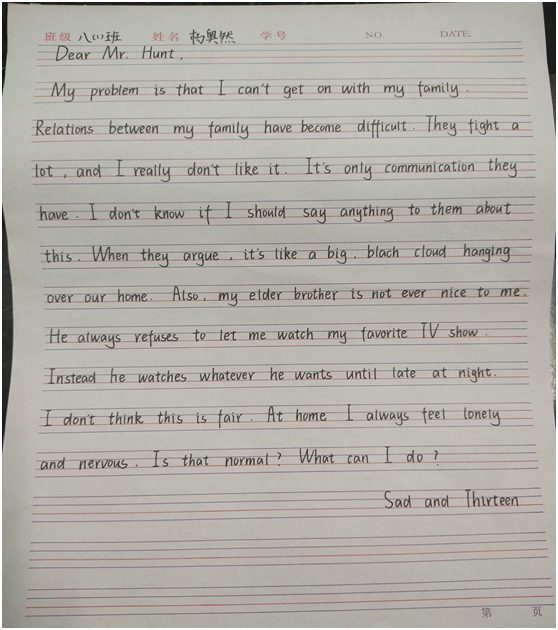 班级 八(1)班 姓名 杨奥然 学号 NO. DATE.
Dear Mr. Hunt,
My problem is that I can't get on with my family.
Relations between my family have become difficult. They fight a
lot, and I really don't like it. It's only communication they
have. I don't know if I should say anything to them about
this. When they argue, it's like a big, blach cloud hanging
over our home. Also, my elder brother is not ever nice to me.
He always refuses to let me watch my favorite TV show.
Instead he watches whatever he wants until late at night.
I don't think this is fair. At home I always feel lonely
and nervous. Is that normal? What can I do?
Sad and Thirteen
第 页